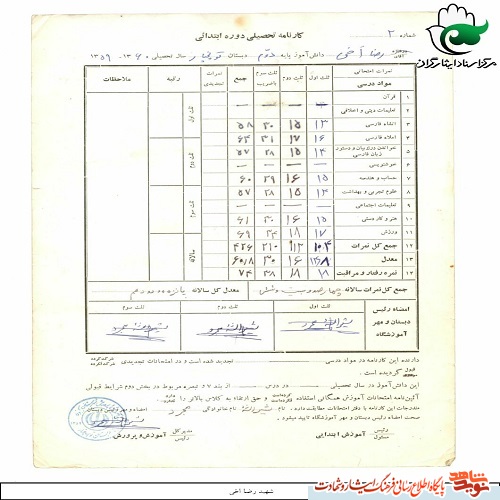 شماره ۲
کارنامه تحصیلی دوره ابتدائی
مرکز اسناد ایثارگران
رضا اخی دانش‌آموز پایه دوم دبستان سال تحصیلی ۱۳۶۰-۱۳۵۹
نمرات امتحانی
مواد درسی
ثلث اول
ثلث دوم
ثلث سوم باضریب
جمع
نمرات تجدیدی
رتبه
ملاحظات
۱ قرآن — — — —
۲ تعلیمات دینی و اخلاقی — — — —
۳ انشاء فارسی ۱۳ ۱۵ ۳۰ ۵۸
۴ املاء فارسی ۱۶ ۱۷ ۳۱ ۶۴
۵ خواندن و رو بیان و دستور زبان فارسی ۱۴ ۱۵ ۲۸ ۵۷
۶ خوشنویسی — — — —
۷ حساب و هندسه ۱۵ ۱۶ ۲۹ ۶۰
۸ علوم تجربی و بهداشت ۱۴ ۱۵ ۲۸ ۵۷
۹ تعلیمات اجتماعی — — — —
۱۰ هنر و کاردستی ۱۵ ۱۶ ۳۰ ۶۱
۱۱ ورزش ۱۷ ۱۸ ۳۴ ۶۹
۱۲ جمع کل نمرات ۱۰۴ ۱۱۲ ۲۱۰ ۴۲۶
۱۳ معدل ۱۶ ۳۰ ۶۰/۸
۱۴ نمره رفتار و مراقبت ۱۸ ۱۸ ۳۸ ۷۴
ثلث اول
ثلث دوم
ثلث سوم
سالانه
جمع کل نمرات سالانه چهارصد و بیست و شش
معدل کل سالانه پانزده
امضاء رئیس دبستان و مهر آموزشگاه
ثلث اول
ثلث دوم
ثلث سوم
دارنده این کارنامه در مواد درسی تجدید شده است و در امتحانات تجدیدی
قبول گردیده است.
این دانش‌آموز در سال تحصیلی در درس از بند ۷ و تبصره مربوط در بخش دوم شرایط قبولی
آئین‌نامه امتحانات آموزش همگانی استفاده و حق ارتقاء به کلاس بالاتر را
مندرجات این کارنامه با دفتر امتحانات مطابقت دارد. نام خانوادگی
صحت امضاء رئیس دبستان و مهر آموزشگاه تایید میشود.
امضاء و مهر رئیس دبستان
رئیس مسئول آموزش ابتدایی
مدیر کل رئیس آموزش و پرورش
شهید رضا اخی
نوید شاهد
پایگاه اطلاع رسانی فرهنگ ایثار و شهادت